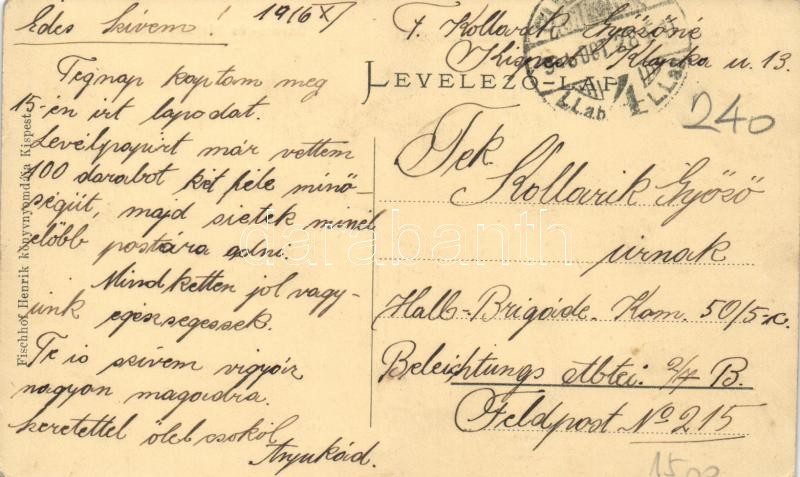 Édes Szívem!
1916 X/
Tegnap kaptam meg
15-én irt lapodat.
Levélpapirt már vettem
100 darabot két féle minő-
ségüt, majd sietek minél
előbb postára adni.
Mind ketten jol vagy-
unk egészségessek.
Te is szívem vigyáz
nagyon magadra.
Szeretettel ölel csokol
Anyukád.
Fischhof Henrik könyvnyomdája Kispest
F. Kollarik Győzőné
Kispest Klapka u. 13.
LEVELEZŐ-LAP
240
Tek.
Kollarik Győző
urnak
Halb-Brigade. Kom. 50/5-
Beleichtungs Abtei. 2/7 B.
Feldpost No 215
darabanth